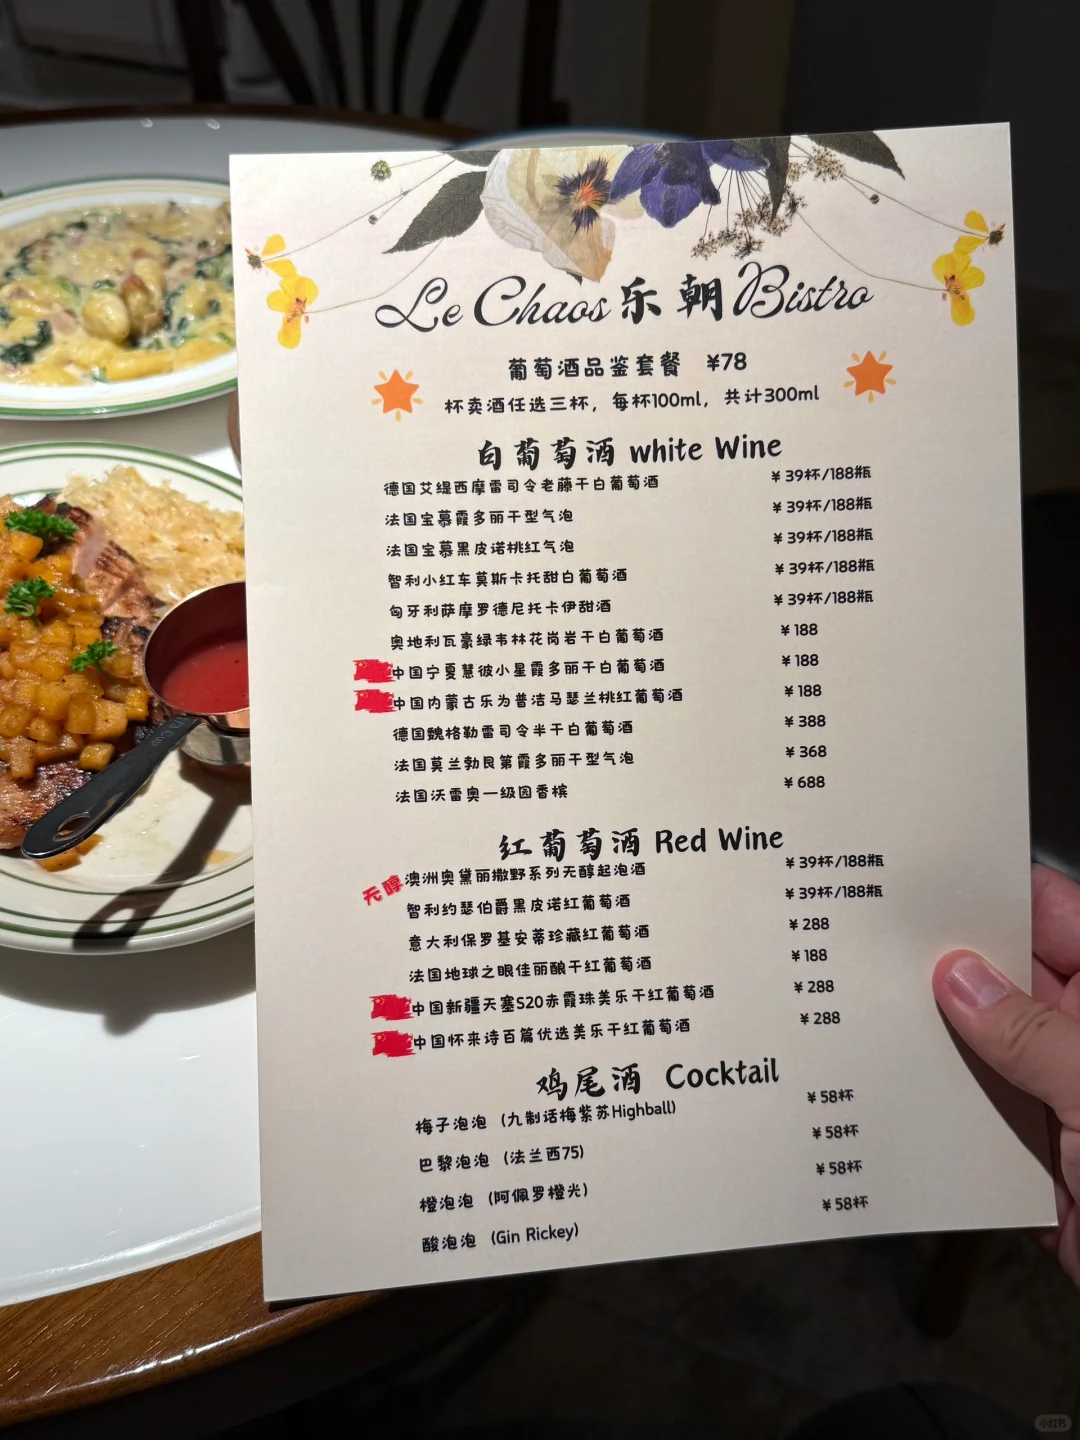 Le Chaos 乐朝 Bistro
葡萄酒品鉴套餐 ¥78
杯卖酒任选三杯，每杯100ml，共计300ml
白葡萄酒 white Wine
德国艾缇西摩雷司令老藤干白葡萄酒 ¥39杯/188瓶
法国宝慕霞多丽干型气泡 ¥39杯/188瓶
法国宝慕黑皮诺桃红气泡 ¥39杯/188瓶
智利小红车莫斯卡托甜白葡萄酒 ¥39杯/188瓶
匈牙利萨摩罗德尼托卡伊甜酒 ¥39杯/188瓶
奥地利瓦豪绿韦林花岗岩干白葡萄酒 ¥188
中国宁夏慧彼小星霞多丽干白葡萄酒 ¥188
中国内蒙古乐为普洁马瑟兰桃红葡萄酒 ¥188
德国魏格勒雷司令半干白葡萄酒 ¥388
法国莫兰勃艮第霞多丽干型气泡 ¥368
法国沃雷奥一级园香槟 ¥688
红葡萄酒 Red Wine
无醇 澳洲奥黛丽撒野系列无醇起泡酒 ¥39杯/188瓶
智利约瑟伯爵黑皮诺红葡萄酒 ¥39杯/188瓶
意大利保罗基安蒂珍藏红葡萄酒 ¥288
法国地球之眼佳丽酿干红葡萄酒 ¥188
中国新疆天塞S20赤霞珠美乐干红葡萄酒 ¥288
中国怀来诗百篇优选美乐干红葡萄酒 ¥288
鸡尾酒 Cocktail
梅子泡泡（九制话梅紫苏Highball） ¥58杯
巴黎泡泡（法兰西75） ¥58杯
橙泡泡（阿佩罗橙光） ¥58杯
酸泡泡（Gin Rickey） ¥58杯
小红书